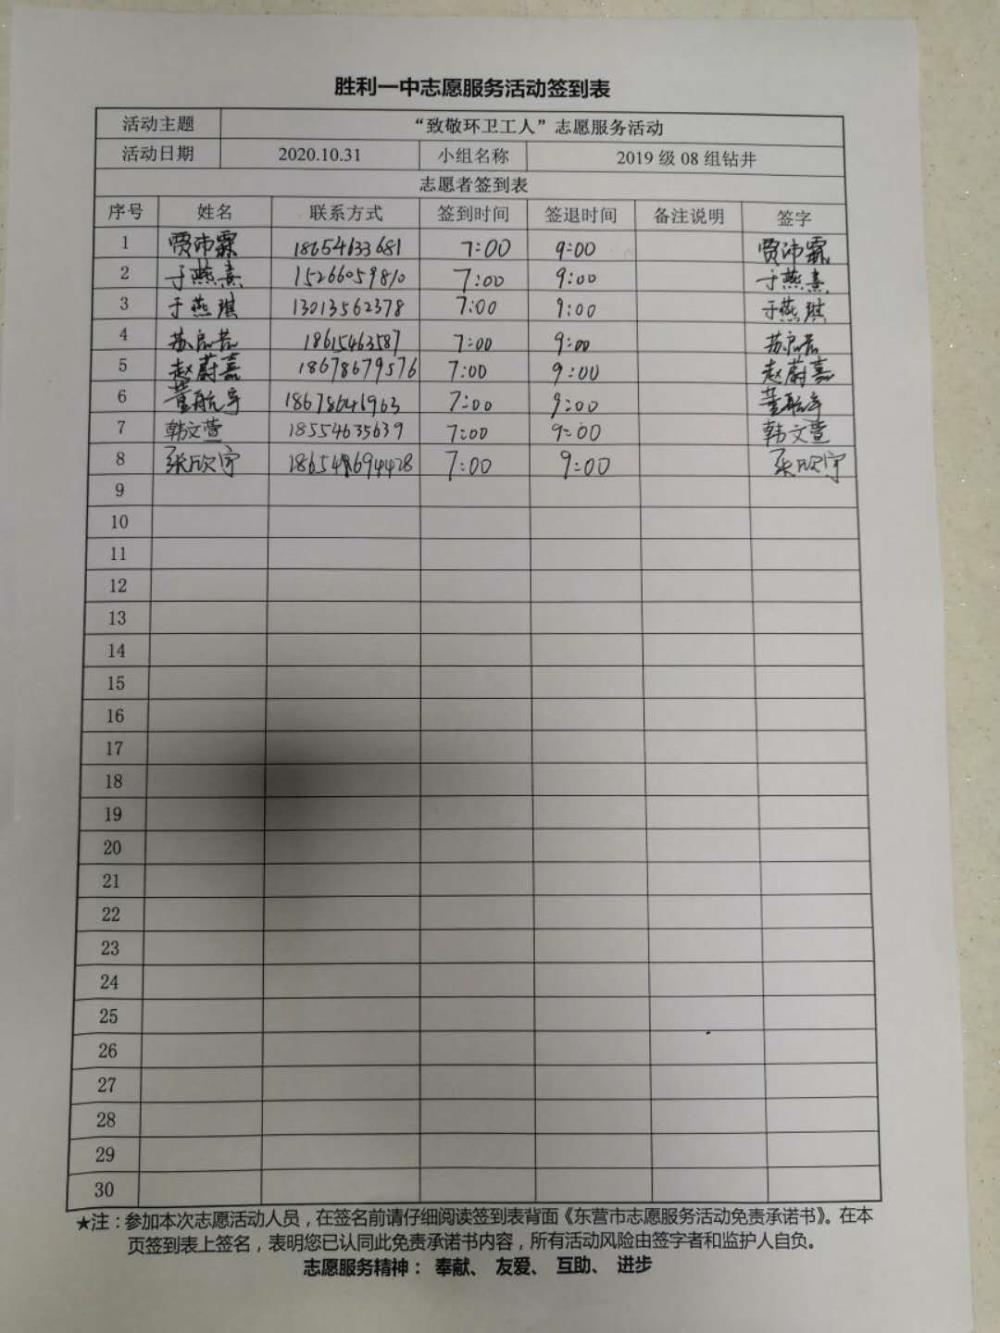 胜利一中志愿服务活动签到表
活动主题 “致敬环卫工人”志愿服务活动
活动日期 2020.10.31 小组名称 2019 级 08 组钻井
志愿者签到表
序号 姓名 联系方式 签到时间 签退时间 备注说明 签字
1 贾沛霖 18654633681 7:00 9:00 贾沛霖
2 于燕熹 15266059810 7:00 9:00 于燕熹
3 于燕琪 13013562378 7:00 9:00 于燕琪
4 18615463587 7:00 9:00
5 赵蔚嘉 18678679576 7:00 9:00 赵蔚嘉
6 董航宇 18678646963 7:00 9:00 董航宇
7 韩文萱 18554635639 7:00 9:00 韩文萱
8 张欣宇 7:00 9:00 张欣宇
9
10
11
12
13
14
15
16
17
18
19
20
21
22
23
24
25
26
27
28
29
30
★注：参加本次志愿活动人员，在签名前请仔细阅读签到表背面《东营市志愿服务活动免责承诺书》。在本
页签到表上签名，表明您已认同此免责承诺书内容，所有活动风险由签字者和监护人自负。
志愿服务精神： 奉献、 友爱、 互助、 进步